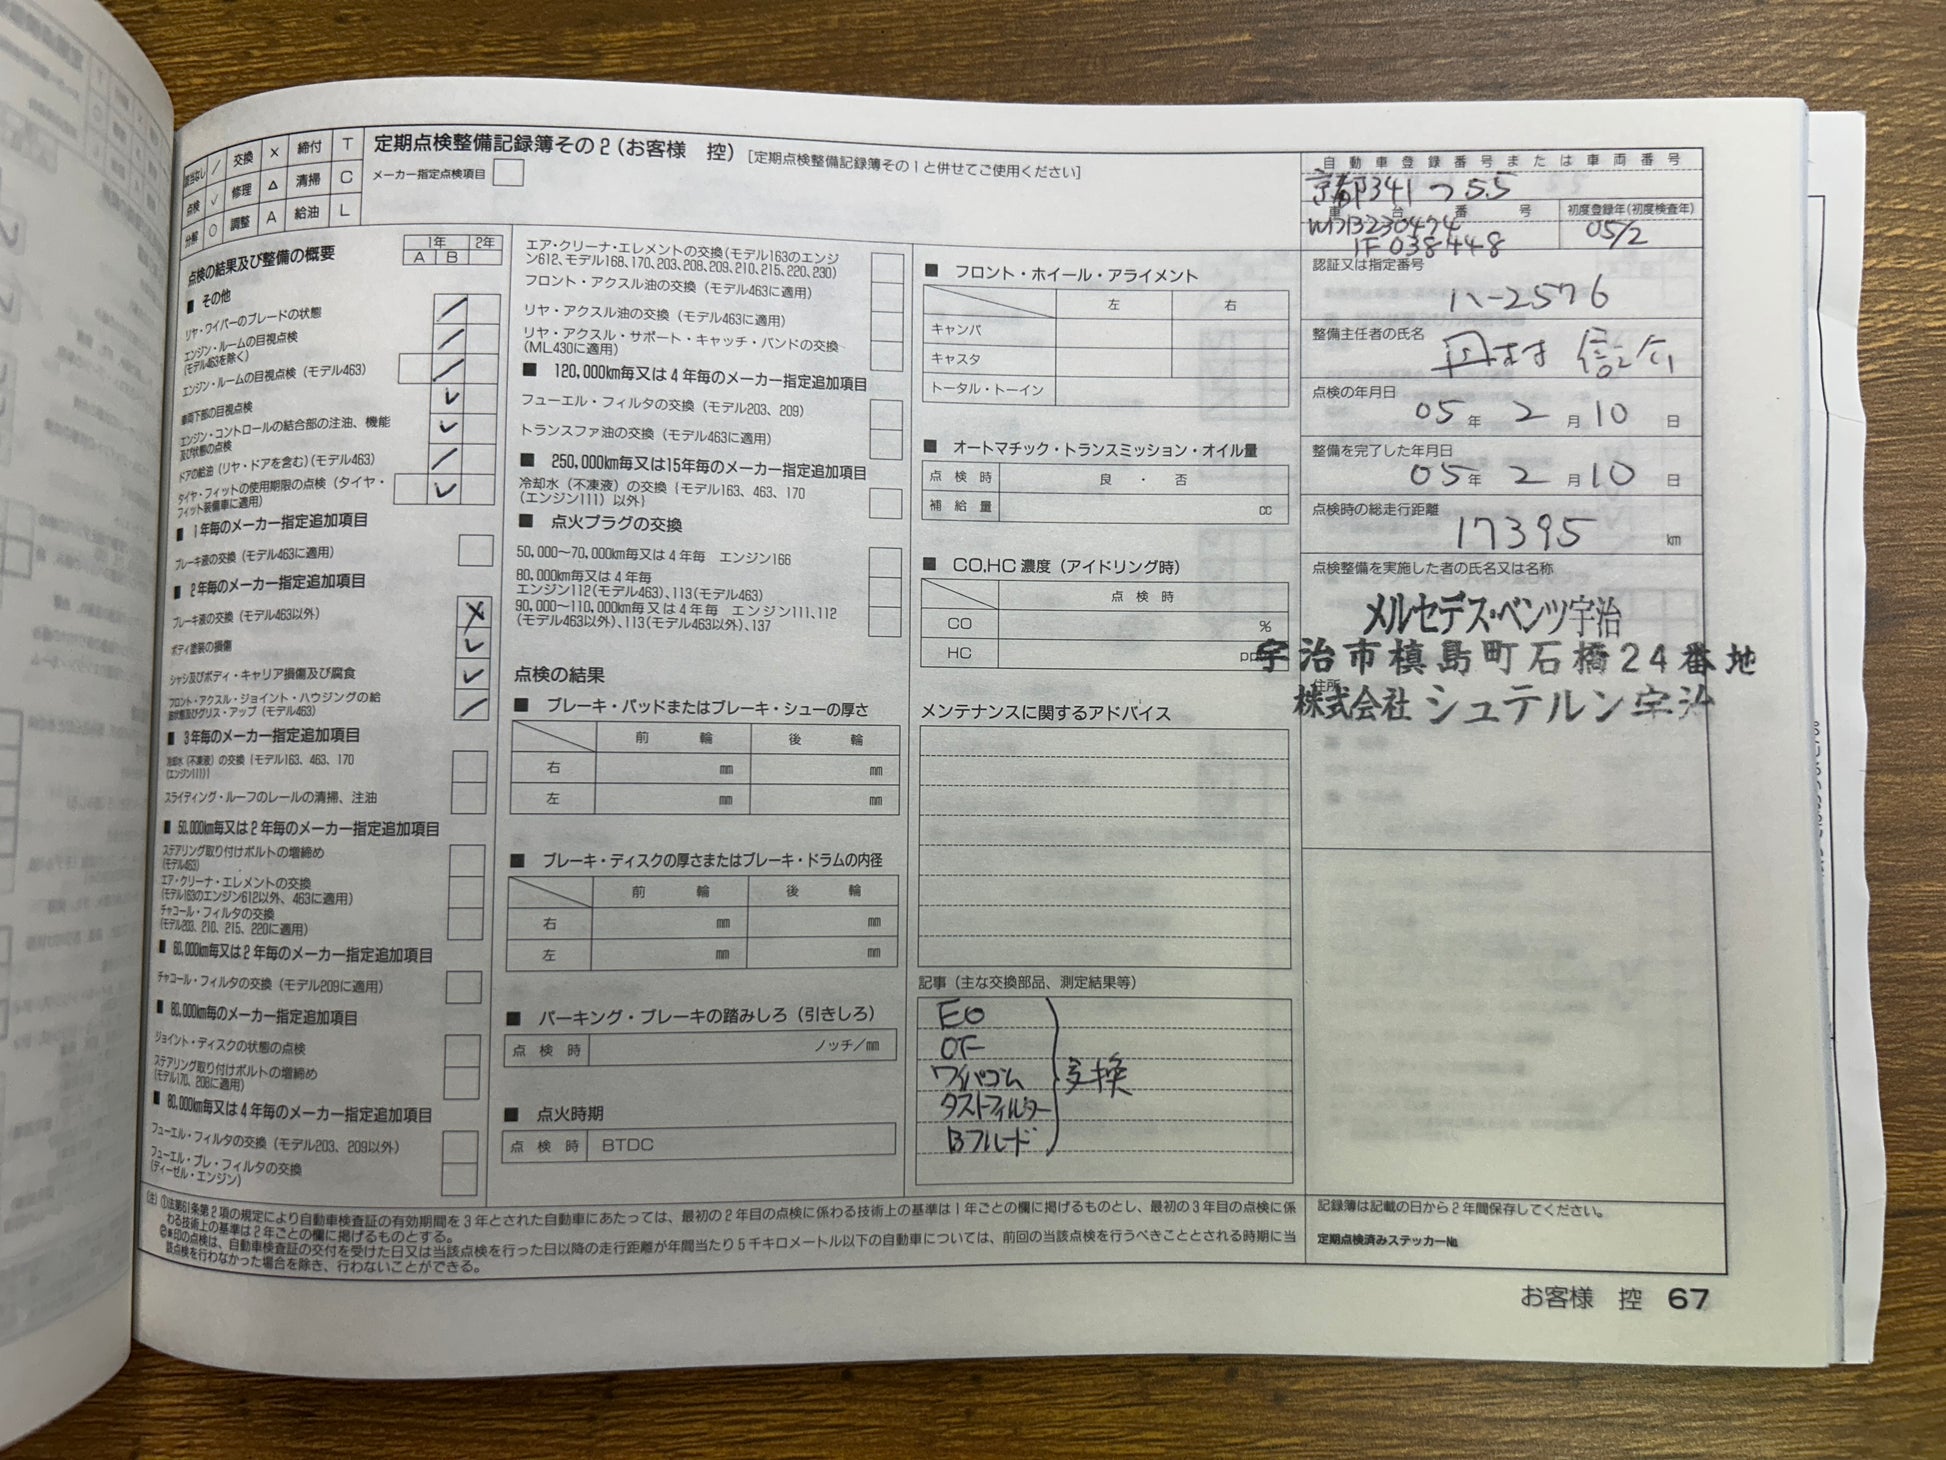 該当なし / 交換 × 締付 T
点検 ✓ 修理 △ 清掃 C
分解 ○ 調整 A 給油 L
定期点検整備記録簿その2(お客様 控)[定期点検整備記録簿その1と併せてご使用ください]
メーカー指定点検項目
点検の結果及び整備の概要
1年 2年
A B
■ その他
リヤ・ワイパーのブレードの状態
エンジン・ルームの目視点検
(モデル463を除く)
エンジン・ルームの目視点検(モデル463)
車両下部の目視点検
エンジン・コントロールの結合部の注油、機能
及び状態の点検
ドアの給油(リヤ・ドアを含む)(モデル463)
タイヤ・フィットの使用期限の点検(タイヤ・
フィット装備車に適用)
■ 1年毎のメーカー指定追加項目
ブレーキ液の交換(モデル463に適用)
■ 2年毎のメーカー指定追加項目
ブレーキ液の交換(モデル463以外)
ボディ塗装の損傷
シャシ及びボディ・キャリア損傷及び腐食
フロント・アクスル・ジョイント・ハウジングの給
脂状態及びグリス・アップ(モデル463)
■ 3年毎のメーカー指定追加項目
冷却水(不凍液)の交換{モデル163、463、170
(エンジン111)}
スライディング・ルーフのレールの清掃、注油
■ 50,000km毎又は2年毎のメーカー指定追加項目
ステアリング取り付けボルトの増締め
(モデル463)
エア・クリーナ・エレメントの交換
(モデル163のエンジン612以外、463に適用)
チャコール・フィルタの交換
(モデル203、210、215、220に適用)
■ 60,000km毎又は2年毎のメーカー指定追加項目
チャコール・フィルタの交換(モデル209に適用)
■ 80,000km毎のメーカー指定追加項目
ジョイント・ディスクの状態の点検
ステアリング取り付けボルトの増締め
(モデル170、208に適用)
■ 80,000km毎又は4年毎のメーカー指定追加項目
フューエル・フィルタの交換(モデル203、209以外)
フューエル・プレ・フィルタの交換
(ディーゼル・エンジン)
エア・クリーナ・エレメントの交換(モデル163のエンジ
ン612、モデル168、170、203、208、209、210、215、220、230)
フロント・アクスル油の交換(モデル463に適用)
リヤ・アクスル油の交換(モデル463に適用)
リヤ・アクスル・サポート・キャッチ・バンドの交換
(ML430に適用)
■ 120,000km毎又は4年毎のメーカー指定追加項目
フューエル・フィルタの交換(モデル203、209)
トランスファ油の交換(モデル463に適用)
■ 250,000km毎又は15年毎のメーカー指定追加項目
冷却水(不凍液)の交換{モデル163、463、170
(エンジン111)以外}
■ 点火プラグの交換
50,000〜70,000km毎又は4年毎 エンジン166
80,000km毎又は4年毎
エンジン112(モデル463)、113(モデル463)
90,000〜110,000km毎又は4年毎 エンジン111、112
(モデル463以外)、113(モデル463以外)、137
点検の結果
■ ブレーキ・パッドまたはブレーキ・シューの厚さ
前 輪 後 輪
右 mm mm
左 mm mm
■ ブレーキ・ディスクの厚さまたはブレーキ・ドラムの内径
前 輪 後 輪
右 mm mm
左 mm mm
■ パーキング・ブレーキの踏みしろ(引きしろ)
点 検 時 ノッチ/mm
■ 点火時期
点 検 時 BTDC
■ フロント・ホイール・アライメント
左 右
キャンバ
キャスタ
トータル・トーイン
■ オートマチック・トランスミッション・オイル量
点 検 時 良 ・ 否
補 給 量 cc
■ CO,HC濃度(アイドリング時)
点 検 時
CO %
HC ppm
メンテナンスに関するアドバイス
記事(主な交換部品、測定結果等)
EO
OF
ワイパゴム 交換
ダストフィルター
Bフルード
自動車登録番号または車両番号
京都341つ55
車 台 番 号 初度登録年(初度検査年)
WDB230474 05/2
1F038448
認証又は指定番号
ハ-2576
整備主任者の氏名
点検の年月日
05年 2月10日
整備を完了した年月日
05年 2月10日
点検時の総走行距離
17395 km
点検整備を実施した者の氏名又は名称
メルセデス・ベンツ宇治
宇治市槙島町石橋24番地
住所
株式会社 シュテルン宇治
(注)①法第61条第2項の規定により自動車検査証の有効期間を3年とされた自動車にあたっては、最初の2年目の点検に係わる技術上の基準は1年ごとの欄に掲げるものとし、最初の3年目の点検に係
わる技術上の基準は2年ごとの欄に掲げるものとする。
②※印の点検は、自動車検査証の交付を受けた日又は当該点検を行った日以降の走行距離が年間当たり5千キロメートル以下の自動車については、前回の当該点検を行うべきこととされる時期に当
該点検を行わなかった場合を除き、行わないことができる。
記録簿は記載の日から2年間保存してください。
定期点検済みステッカー№
お客様 控 67